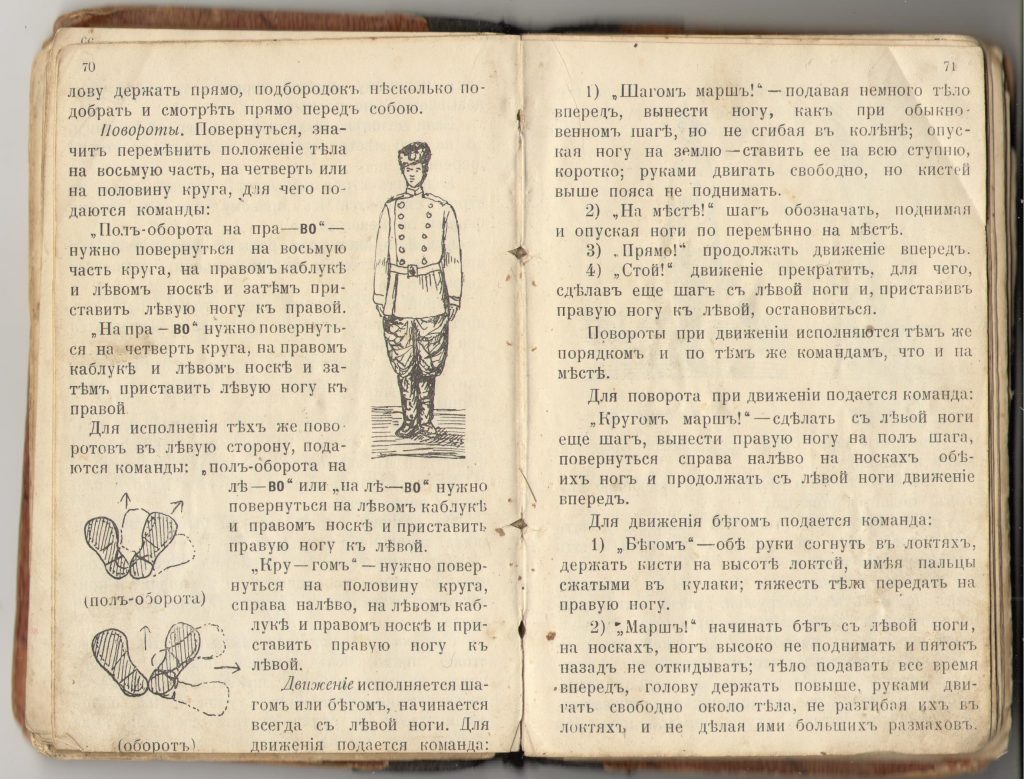 70
лову держать прямо, подбородокъ нѣсколько по-
добрать и смотрѣть прямо передъ собою.
Повороты. Повернуться, зна-
читъ перемѣнить положеніе тѣла
на восьмую часть, на четверть или
на половину круга, для чего по-
даются команды:
„Полъ-оборота на пра—ВО“—
нужно повернуться на восьмую
часть круга, на правомъ каблукѣ
и лѣвомъ носкѣ и затѣмъ при-
ставить лѣвую ногу къ правой.
„На пра – ВО“ нужно повернуть-
ся на четверть круга, на правомъ
каблукѣ и лѣвомъ носкѣ и за-
тѣмъ приставить лѣвую ногу къ
правой
Для исполненія тѣхъ же пово-
ротовъ въ лѣвую сторону, пода-
ются команды: „полъ-оборота на
лѣ—ВО“ или „на лѣ—ВО“ нужно
повернуться на лѣвомъ каблукѣ
и правомъ носкѣ и приставить
правую ногу къ лѣвой.
„Кру—гомъ“ – нужно повер-
нуться на половину круга,
справа налѣво, на лѣвомъ каб-
лукѣ и правомъ носкѣ и при-
ставить правую ногу къ
лѣвой.
Движеніе исполняется ша-
гомъ или бѣгомъ, начинается
всегда съ лѣвой ноги. Для
движенія подается команда:
(полъ-оборота)
(оборотъ)
71
1) „Шагомъ маршъ!“—подавая немного тѣло
впередъ, вынести ногу, какъ при обыкно-
венномъ шагѣ, но не сгибая въ колѣнѣ; опус-
кая ногу на землю—ставить ее на всю ступню,
коротко; руками двигать свободно, но кистей
выше пояса не поднимать.
2) „На мѣстѣ!“ шагъ обозначать, поднимая
и опуская ноги по перемѣнно на мѣстѣ.
3) „Прямо!“ продолжать движеніе впередъ.
4) „Стой!“ движеніе прекратить, для чего,
сдѣлавъ еще шагъ съ лѣвой ноги и, приставивъ
правую ногу къ лѣвой, остановиться.
Повороты при движеніи исполняются тѣмъ же
порядкомъ и по тѣмъ же командамъ, что и на
мѣстѣ.
Для поворота при движеніи подается команда:
„Кругомъ маршъ!“—сдѣлать съ лѣвой ноги
еще шагъ, вынести правую ногу на полъ шага,
повернуться справа налѣво на носкахъ обѣ-
ихъ ногъ и продолжать съ лѣвой ноги движеніе
впередъ.
Для движенія бѣгомъ подается команда:
1) „Бѣгомъ“—обѣ руки согнуть въ локтяхъ,
держать кисти на высотѣ локтей, имѣя пальцы
сжатыми въ кулаки; тяжесть тѣла передать на
правую ногу.
2) „Маршъ!“ начинать бѣгъ съ лѣвой ноги,
на носкахъ, ногъ высоко не поднимать и пятокъ
назадъ не откидывать; тѣло подавать все время
впередъ, голову держать повыше, руками дви-
гать свободно около тѣла, не разгибая ихъ въ
локтяхъ и не дѣлая ими большихъ размаховъ.